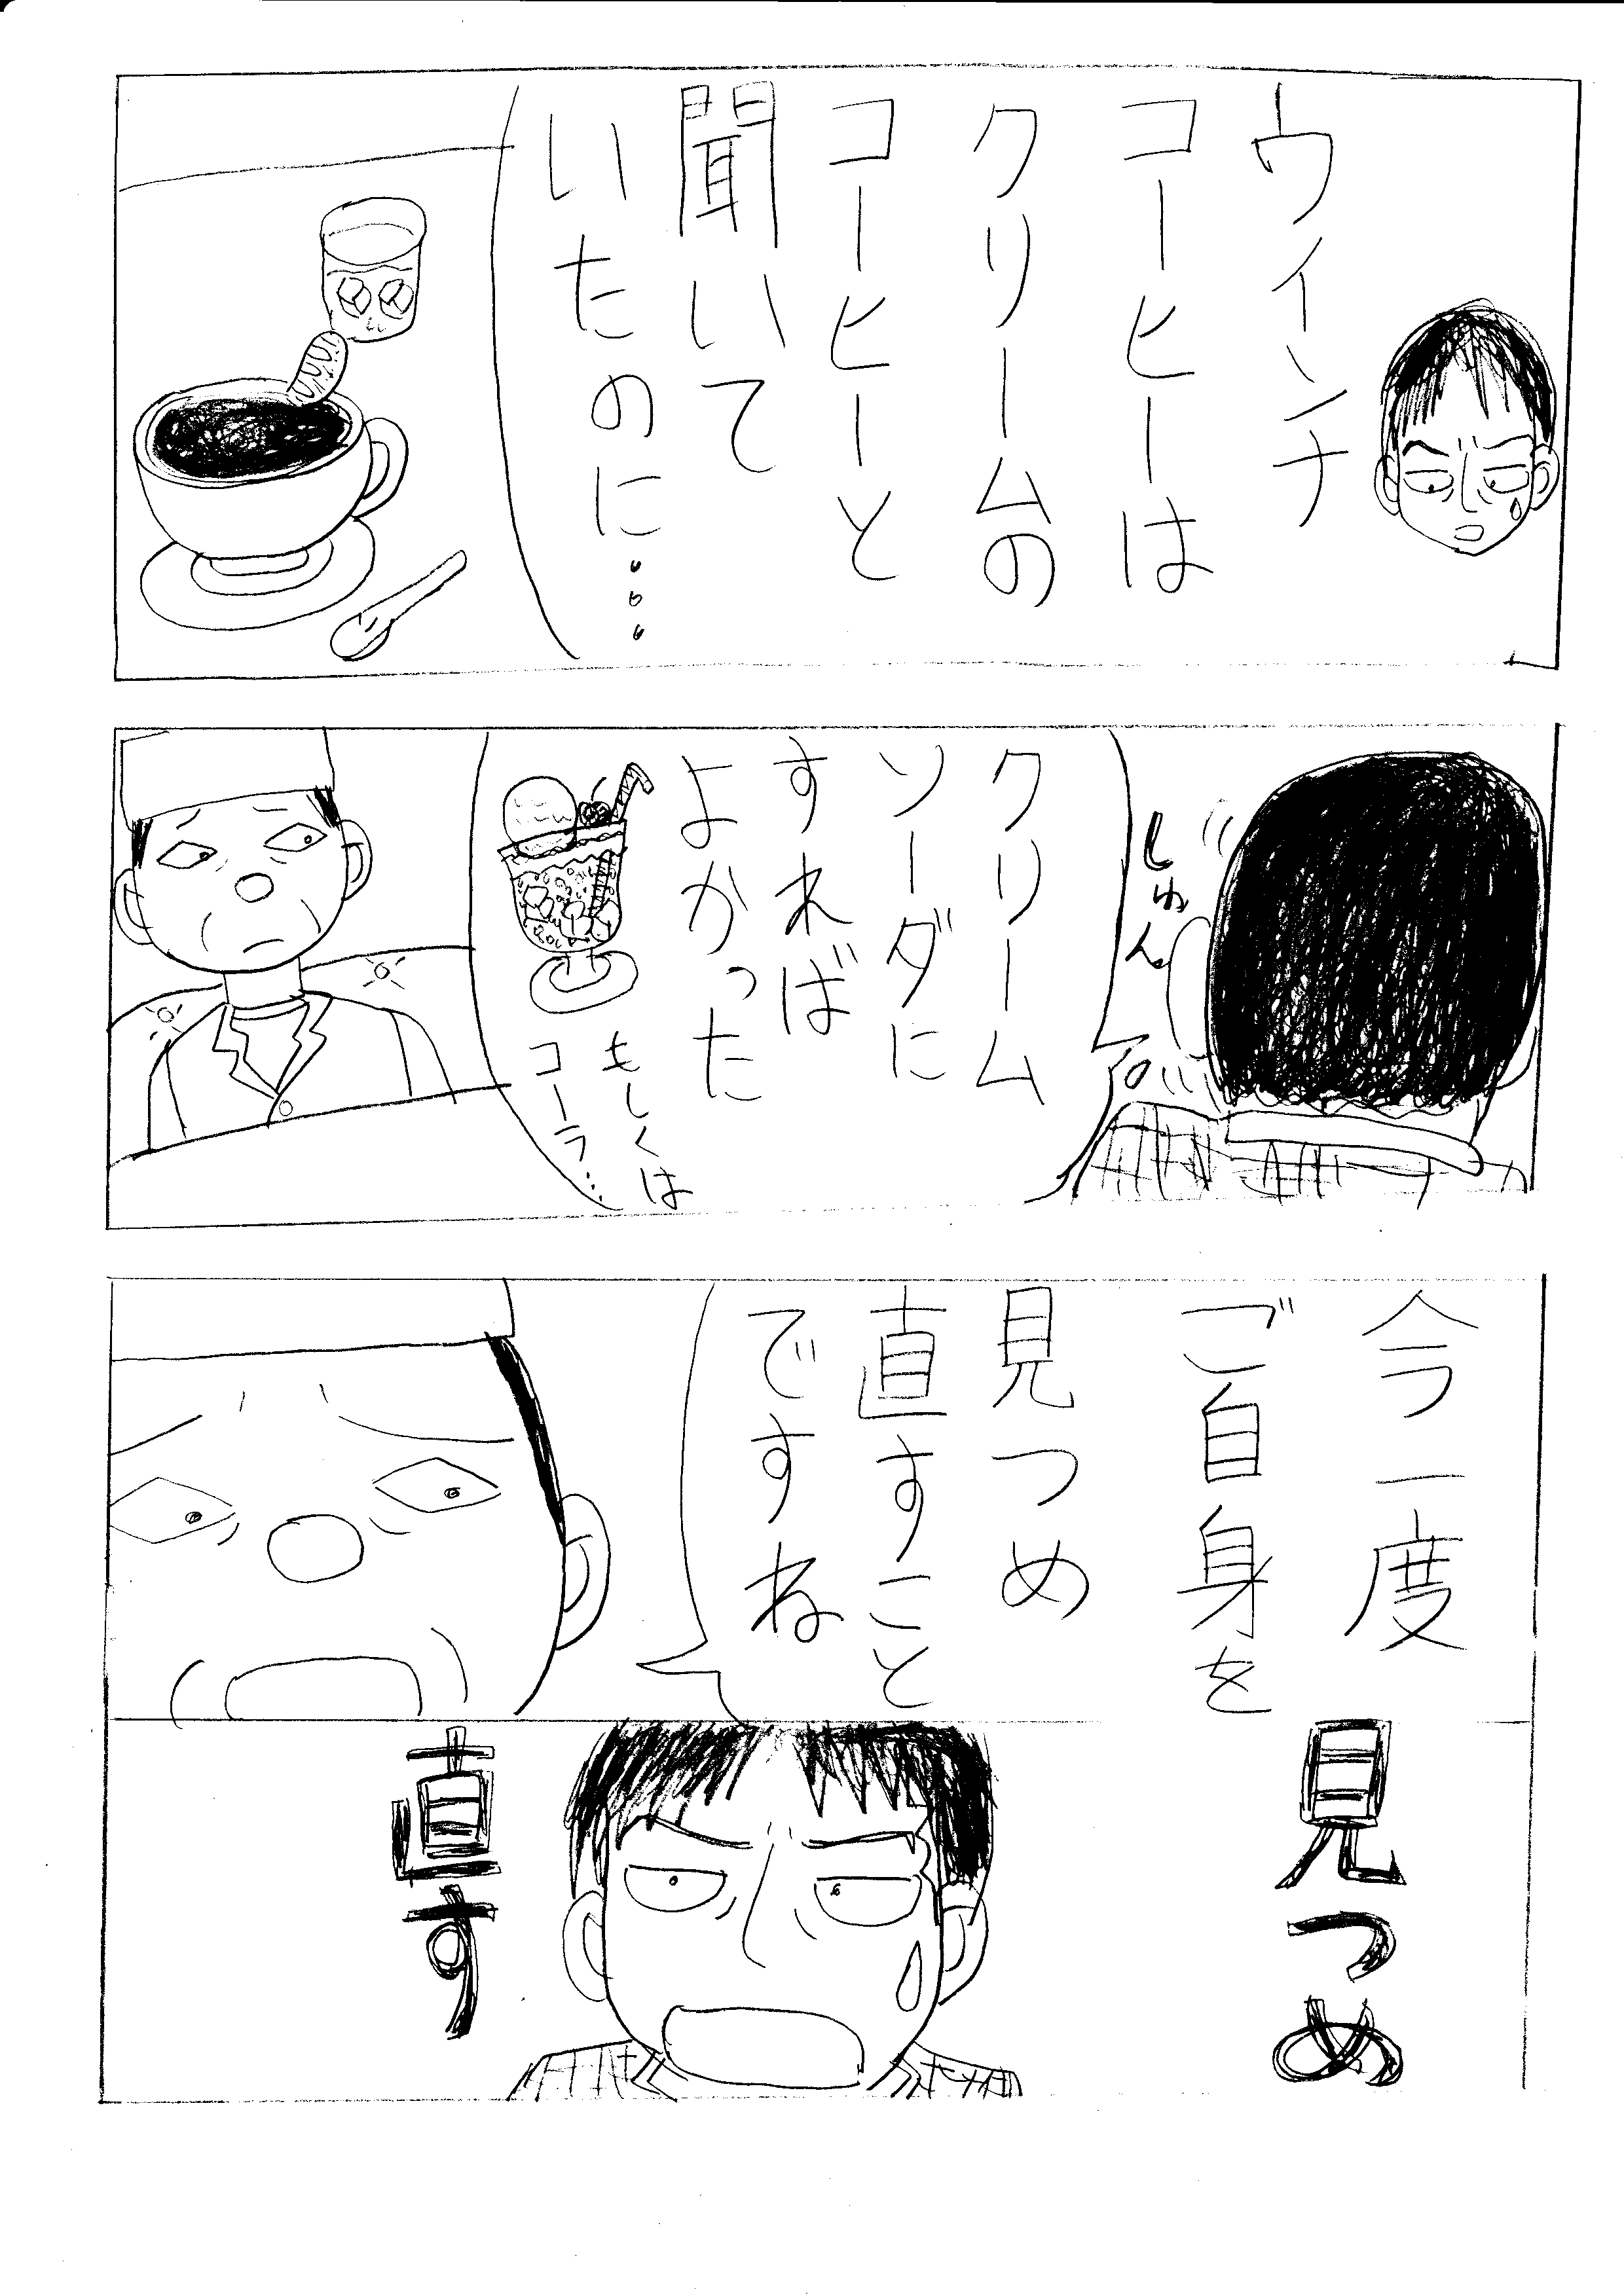 ウィンナ
コーヒーは
クリームの
コーヒーと
聞いて
いたのに・・・
しゅん。
クリーム
ソーダに
すれば
よかった
もしくは
コーラ・・・
今一度
ご自身を
見つめ
直すこと
ですね
見つめ
直す